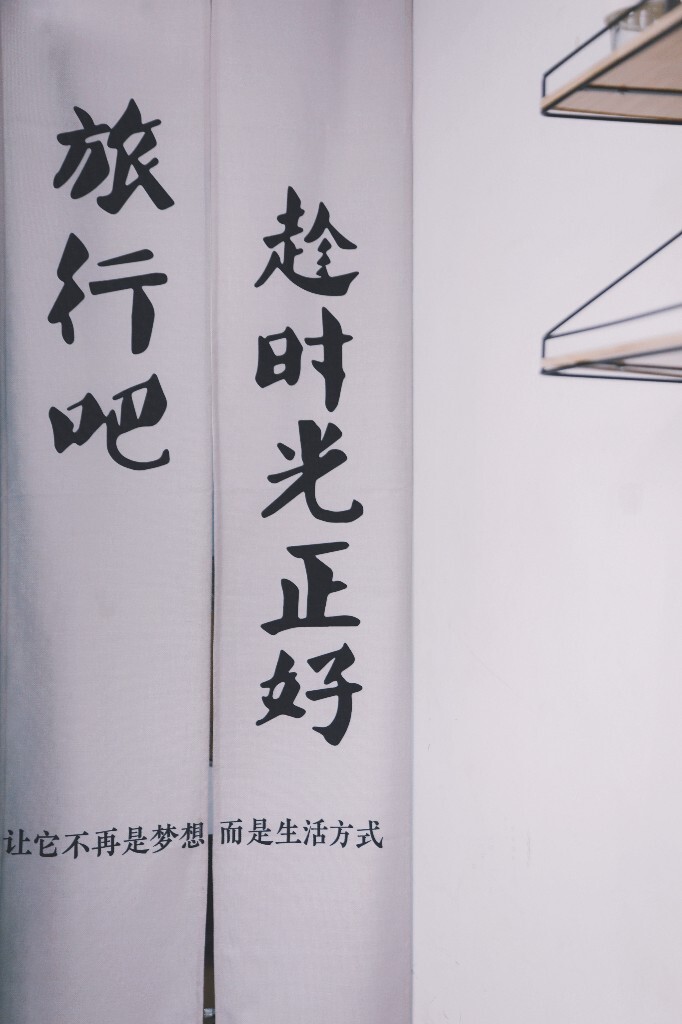 旅行吧
趁时光正好
让它不再是梦想 而是生活方式